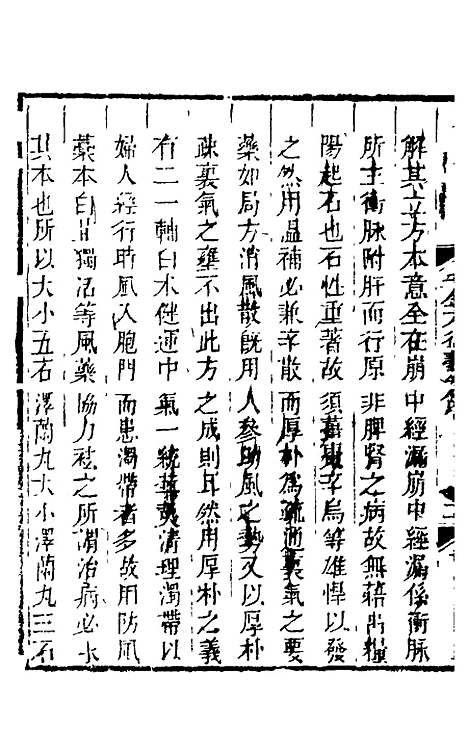 解其立方本意全在崩中經漏崩中經漏係衝脉
所主衝脉附肝而行原非脾腎之病故無藉禹糧
陽起石也石性重著故須薑辛烏等雄悍以發
之然用温補必兼辛散而厚朴爲疏通裏氣之要
藥如局方消風散既用人參助風之勢又以厚朴
疎裏氣之壅不出此方之成則耳然用厚朴之義
有二一軸白术健運中氣一統蕪荑清理濁帶以
婦人經行時風入胞門而患濁帶者多故用防風
藁本白甘獨活等風藥協力袪之所謂治病必求
其本也所以大小五石澤蘭丸大小澤蘭丸三石